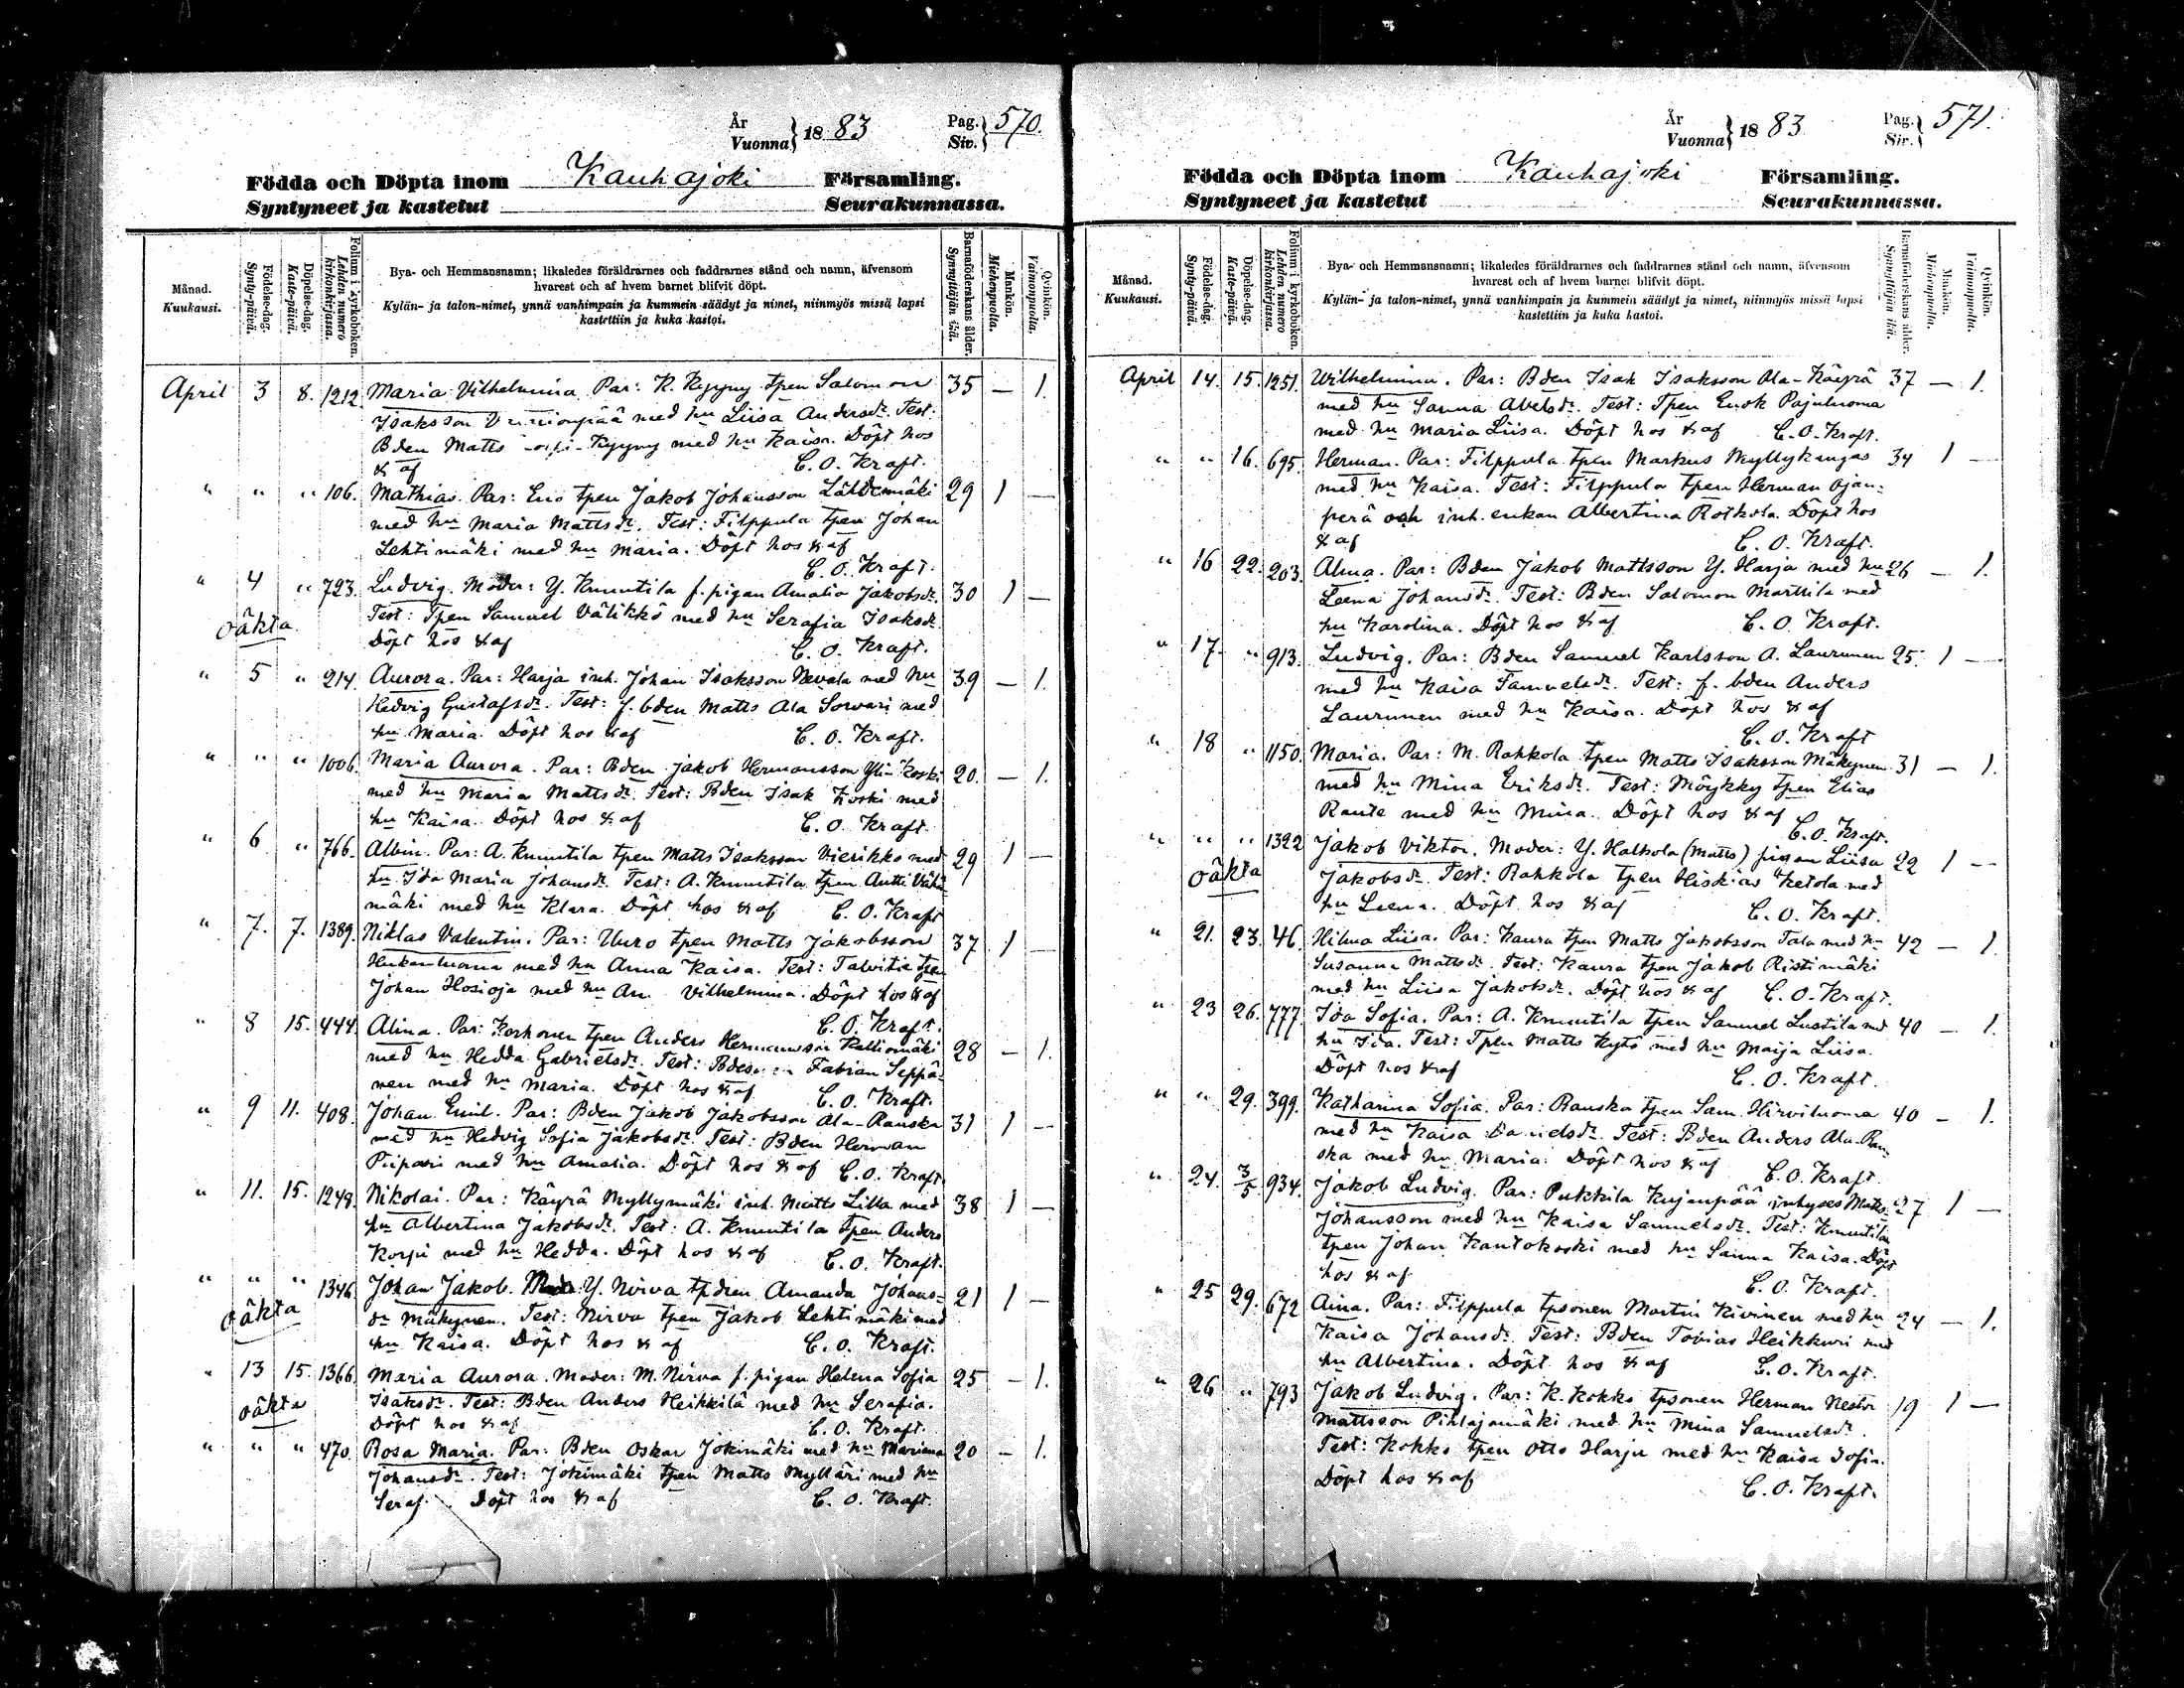 År
Vuonna } 18 83
Pag.
Siv. } 570.
Födda och Döpta inom Kauhajoki Församling.
Syntyneet ja kastetut Seurakunnassa.
Månad.
Kuukausi.
Födelse-dag.
Synty-päivä.
Döpelse-dag.
Kaste-päivä.
Folium i kyrkoboken.
Lehden numero
kirkonkirjassa.
Bya- och Hemmansnamn; likaledes föräldrarnes och faddrarnes stånd och namn, äfvensom
hvarest och af hvem barnet blifvit döpt.
Kylän- ja talon-nimet, ynnä vanhimpain ja kummein säädyt ja nimet, niinmyös missä lapsi
kastettiin ja kuka kastoi.
Barnaföderskans ålder.
Synnyttäjän ikä.
Mankön.
Miehenpuolia.
Qvinkön.
Vaimonpuolia.
April 3 8. 1212 Maria Vilhelmina Par: K. Kyyny tpen Salomon 35 — 1.
Isaksson med hu Liisa Andersdr. Test:
Bden Matts Kyyny med hu Kaisa. Döpt hos
& af C. O. Kraft.
" " " 106. Mathias. Par: Eno tpen Jakob Johansson Lähdemäki 29 1 —
med hu Maria Mattsdr. Test: Filppula tpen Johan
Lehtimäki med hu Maria. Döpt hos & af
C. O. Kraft.
" 4 " 723. Ludvig. Moder: Y. Knuutila f. pigan Amalia Jakobsdr. 30 1 —
oäkta Test: Tpen Samuel Välikkö med hu Serafia Isaksdr.
Döpt hos & af C. O. Kraft.
" 5 " 214. Aurora. Par: Harja inh. Johan Isaksson Nevala med hu 39 — 1.
Hedvig Gustafsdr. Test: f. bden Matts Ala Sorvari med
hu Maria. Döpt hos & af C. O. Kraft.
" " " 1006. Maria Aurora. Par: Bden Jakob Hermansson Yli-Koski 20. — 1.
med hu Maria Mattsdr. Test: Bden Isak Koski med
hu Kaisa. Döpt hos & af C. O. Kraft.
" 6 " 766. Albin. Par: A. Knuutila tpen Matts Isaksson Vierikko med 29 1 —
hu Ida Maria Johansdr. Test: A. Knuutila tpen Antti Vähä
mäki med hu Klara. Döpt hos & af C. O. Kraft
" 7. 7. 1389. Niklas Valentin. Par: Uuro tpen Matts Jakobsson 37 1 —
med hu Anna Kaisa. Test: Talvitie tpen
Johan Hosioja med hu Vilhelmina. Döpt hos & af
C. O. Kraft.
" 8 15. 444. Alina. Par: Korhonen tpen Anders Hermansson Kalliomäki 28 — 1.
med hu Hedda Gabrielsdr. Test: Fabian Seppä-
nen med hu Maria. Döpt hos & af C. O. Kraft.
" 9 11. 408. Johan Emil. Par: Bden Jakob Jakobsson Ala-Rauska 31 1 —
med hu Hedvig Sofia Jakobsdr. Test: Bden Herman
Piipari med hu Amalia. Döpt hos & af C. O. Kraft
" 11. 15. 1248. Nikolai. Par: Käyrä Myllymäki inh. Matts Lilla med 38 1 —
hu Albertina Jakobsdr. Test: A. Knuutila tpen Anders
Korpi med hu Hedda. Döpt hos & af C. O. Kraft.
" " " 1346 Johan Jakob. Moder: Y. Nirva tpdren Amanda Johans- 21 1 —
oäkta dr Mäkynen. Test: Nirva tpen Jakob Lehtimäki med
hu Kaisa. Döpt hos & af C. O. Kraft.
" 13 15. 1366. Maria Aurora. Moder: M. Nirva f. pigan Helena Sofia 25 — 1.
oäkta Isaksdr. Test: Bden Anders Heikkilä med hu Serafia.
Döpt hos & af C. O. Kraft.
" " " 470. Rosa Maria. Par: Bden Oskar Jokimäki med hu Mariana 20 — 1.
Johansdr. Test: Jokimäki tpen Matts Mylläri med hu
Seraf Döpt hos & af C. O. Kraft.
År
Vuonna } 18 83
Pag.
Siv. } 571.
Födda och Döpta inom Kauhajoki Församling.
Syntyneet ja kastetut Seurakunnassa.
Månad.
Kuukausi.
Födelse-dag.
Synty-päivä.
Döpelse-dag.
Kaste-päivä.
Folium i kyrkoboken.
Lehden numero
kirkonkirjassa.
Bya- och Hemmansnamn; likaledes föräldrarnes och faddrarnes stånd och namn, äfvensom
hvarest och af hvem barnet blifvit döpt.
Kylän- ja talon-nimet, ynnä vanhimpain ja kummein säädyt ja nimet, niinmyös missä lapsi
kastettiin ja kuka kastoi.
Barnaföderskans ålder.
Synnyttäjän ikä.
Mankön.
Miehenpuolia.
Qvinkön.
Vaimonpuolia.
April 14. 15. 1251. Wilhelmina. Par: Bden Isak Isaksson Ala-Käyrä 37 — 1.
med hu Sanna Abelsdr. Test: Tpen Enok Pajuluoma
med hu Maria Liisa. Döpt hos & af C. O. Kraft.
" " 16. 695. Herman. Par: Filppula tpen Markus Myllykangas 34 1 —
med hu Kaisa. Test: Filppula tpen Herman Ojan-
perä och inh. enkan Albertina Rotkola. Döpt hos
& af C. O. Kraft.
" 16 22. 203. Alma. Par: Bden Jakob Mattsson Y. Harja med hu 26 — 1.
Leena Johansdr. Test: Bden Salomon Marttila med
hu Karolina. Döpt hos & af C. O. Kraft.
" 17. " 913. Ludvig. Par: Bden Samuel Karlsson A. Laurunen 25. 1 —
med hu Kaisa Samuelsdr. Test: f. bden Anders
Laurunen med hu Kaisa. Döpt hos & af
C. O. Kraft
" 18 " 1150. Maria. Par: M. Rahkola tpen Matts Isaksson Mäkynen 31 — 1.
med hu Mina Eriksdr. Test: Möykky tpen Elias
Rante med hu Mina. Döpt hos & af
C. O. Kraft.
" " " 1322 Jakob Viktor. Moder: Y. Halkola (Matts) pigan Liisa 22 1 —
oäkta Jakobsdr. Test: Rahkola tpen Hiskias Ketola med
hu Leena. Döpt hos & af C. O. Kraft.
" 21. 23. 46. Hilma Liisa. Par: Kaura tpen Matts Jakobsson Tala med hu 42 — 1.
Susanna Mattsdr. Test: Kaura tpen Jakob Ristimäki
med hu Liisa Jakobsdr. Döpt hos & af C. O. Kraft.
" 23 26. 777. Ida Sofia. Par: A. Knuutila tpen Samuel Lustila med 40 — 1.
hu Ida. Test: Tpen Matts Kytö med hu Maija Liisa.
Döpt hos & af C. O. Kraft.
" " 29. 399. Katharina Sofia. Par: Rauska tpen Sam. Hirviluoma 40 — 1.
med hu Kaisa Danielsdr. Test: Bden Anders Ala-Rau-
ska med hu Maria. Döpt hos & af C. O. Kraft.
" 24. 3/5. 934. Jakob Ludvig. Par: Pukkila Kujanpää inhyses Matts 27 1 —
Johansson med hu Kaisa Samuelsdr. Test: Knuutila
tpen Johan Kantokoski med hu Sanna Kaisa. Döpt
hos & af C. O. Kraft.
" 25 29. 672 Aina. Par: Filppula tpsonen Martin Kivinen med hu 24 — 1.
Kaisa Johansdr. Test: Bden Tobias Heikkuri med
hu Albertina. Döpt hos & af C. O. Kraft.
" 26 " 793 Jakob Ludvig. Par: K. Kokko tpsonen Herman Nestor 19 1 —
Mattsson Pihlajamäki med hu Mina Samuelsdr.
Test: Kokko tpen Otto Harju med hu Kaisa Sofia.
Döpt hos & af C. O. Kraft.